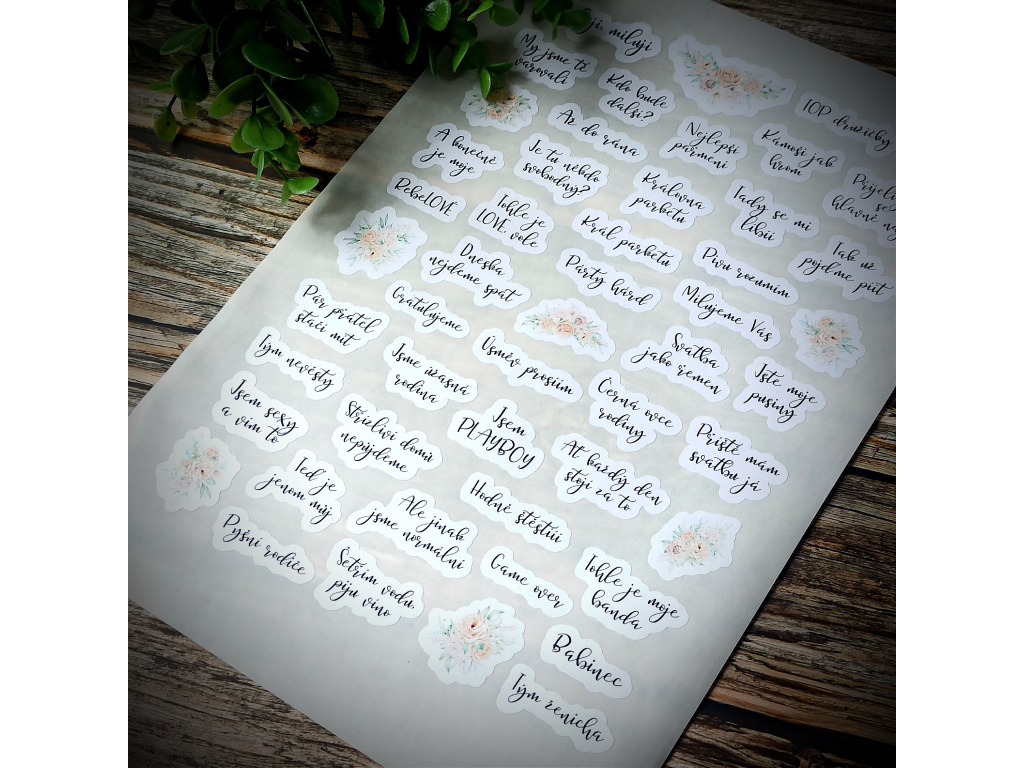 miluji
My jsme tě
varovali
Kdo bude
další?
TOP družičky
Až do rána
Nejlepší
parmeni
Kámoši jak
hrom
A konečně
je moje
Je tu někdo
svobodný?
Královna
parketu
Tady se mi
líbíí
Přijeli
se
hlavně
RebeLOVE
Tohle je
LOVE vole
Král parketu
Pivu rozumím
Tak už
pojďme pít
Dneska
nejdeme spát
Párty hárd
Milujeme Vás
Pár přátel
stačí mít
Gratulujeme
Úsměv prosíím
Svatba
jako řemen
Jste moje
pusiny
Tým nevěsty
Jsme úžasná
rodina
Černá ovce
rodiny
Příště mám
svatbu já
Jsem sexy
a vím to
Střízliví domů
nepůjdeme
Jsem
PLAYBOY
Ať každý den
stojí za to
Teď je
jenom můj
Ale jinak
jsme normální
Hodně štěstíí
Pyšní rodiče
Šetřím vodu,
piju víno
Game over
Tohle je moje
banda
Babinec
Tým ženicha